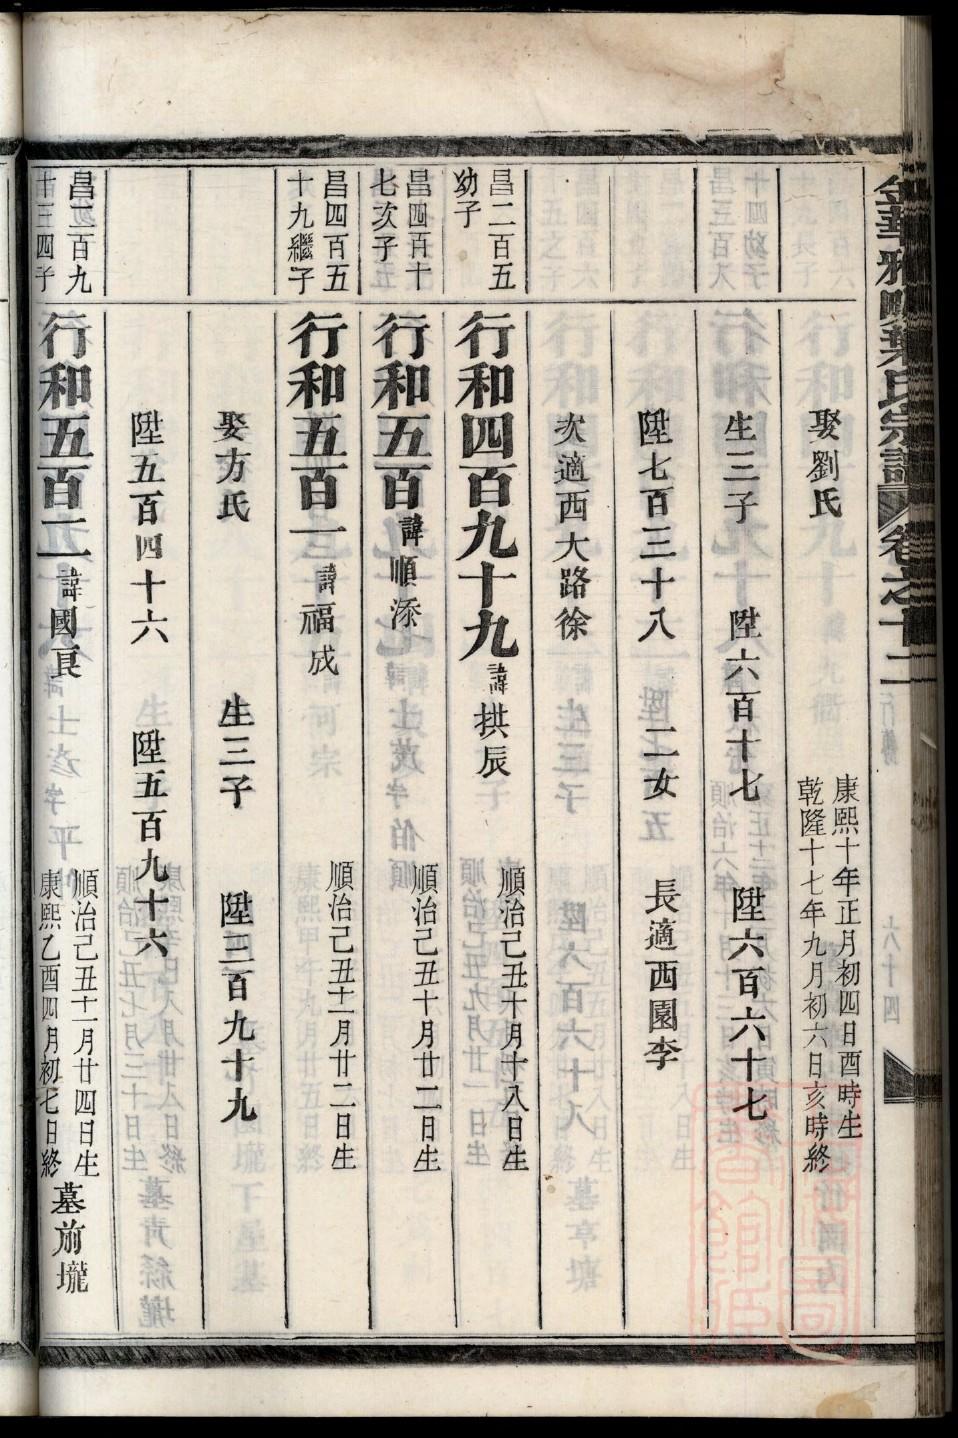 卷之十二
娶劉氏
康熙十年正月初四日酉時生
乾隆十七年九月初六日亥時終
生三子
陞六百十七
陞六百六十七
陞七百三十八
二女
長適西園李
次適西大路徐
昌二百五
幼子
行和四百九十九
諱拱辰
順治己丑十月十八日生
昌四百十
七次子
行和五百
諱順添
順治己丑十月廿二日生
昌四百五
十九繼子
行和五百一
諱福成
順治己丑十一月廿二日生
娶方氏
生三子
陞三百九十九
陞五百四十六
陞五百九十六
昌三百九
十三四子
行和五百二
諱國良
順治己丑十一月廿四日生
康熙乙酉四月初七日終
墓前壠